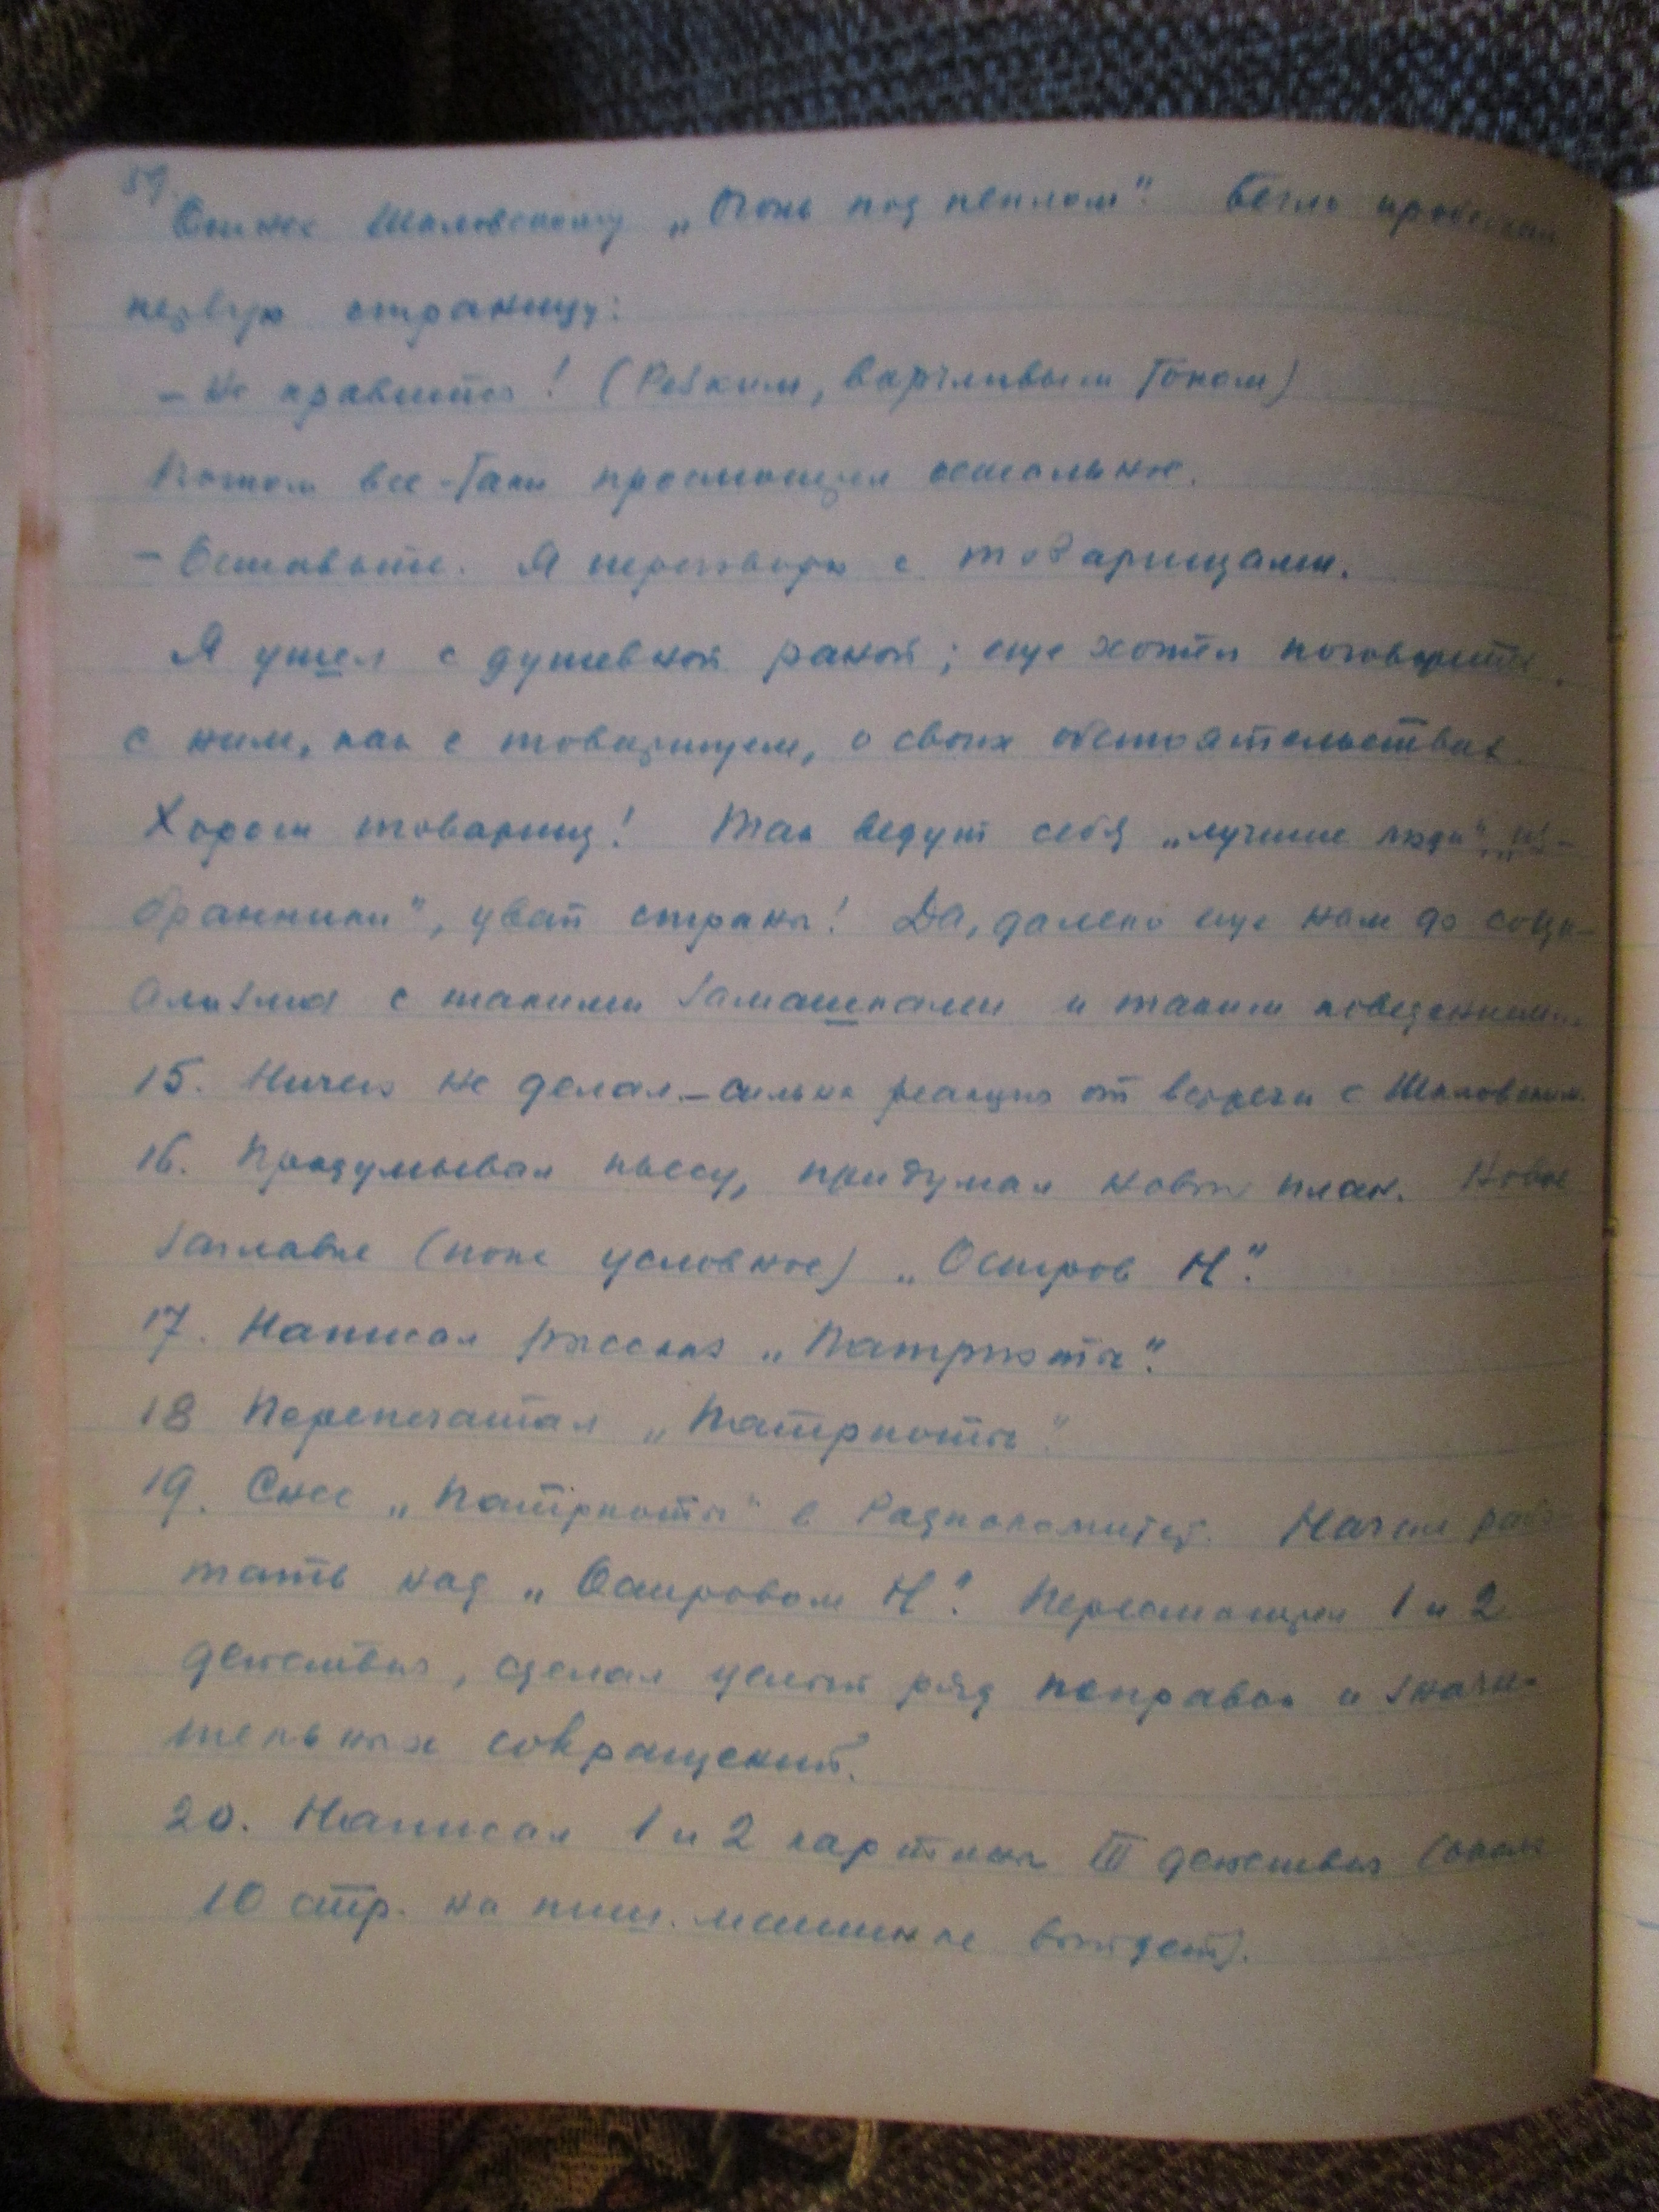 51.
Отнес Шкловскому „Огонь под пеплом". Бегло просмотрел
первую страницу:
– Не нравится! (Резким, ворчливым тоном)
Потом все-таки просмотрел остальное.
– Оставьте. Я переговорю с товарищами.
Я ушел с душевной раной; еще хотел поговорить
с ним, как с товарищем, о своих обстоятельствах.
Хорош товарищ! Так ведут себя „лучшие люди", „из-
бранники", увы страны! Да, далеко еще нам до соци-
ализма с такими замашками и таким поведением...
15. Ничего не делал – сильна реакция от встречи с Шкловским.
16. Продумывал пьесу, придумал новый план. Новое
заглавие (пока условное) „Остров Н".
17. Написал рассказ „Патриоты".
18 Перепечатал „Патриоты"
19. Снес „Патриоты" в Радиокомитет. Начал рабо-
тать над „Островом Н". Пересмотрел 1 и 2
действия, сделал целый ряд поправок и значи-
тельных сокращений.
20. Написал 1 и 2 картины III действия (около
10 стр. на пиш. машинке выйдет).